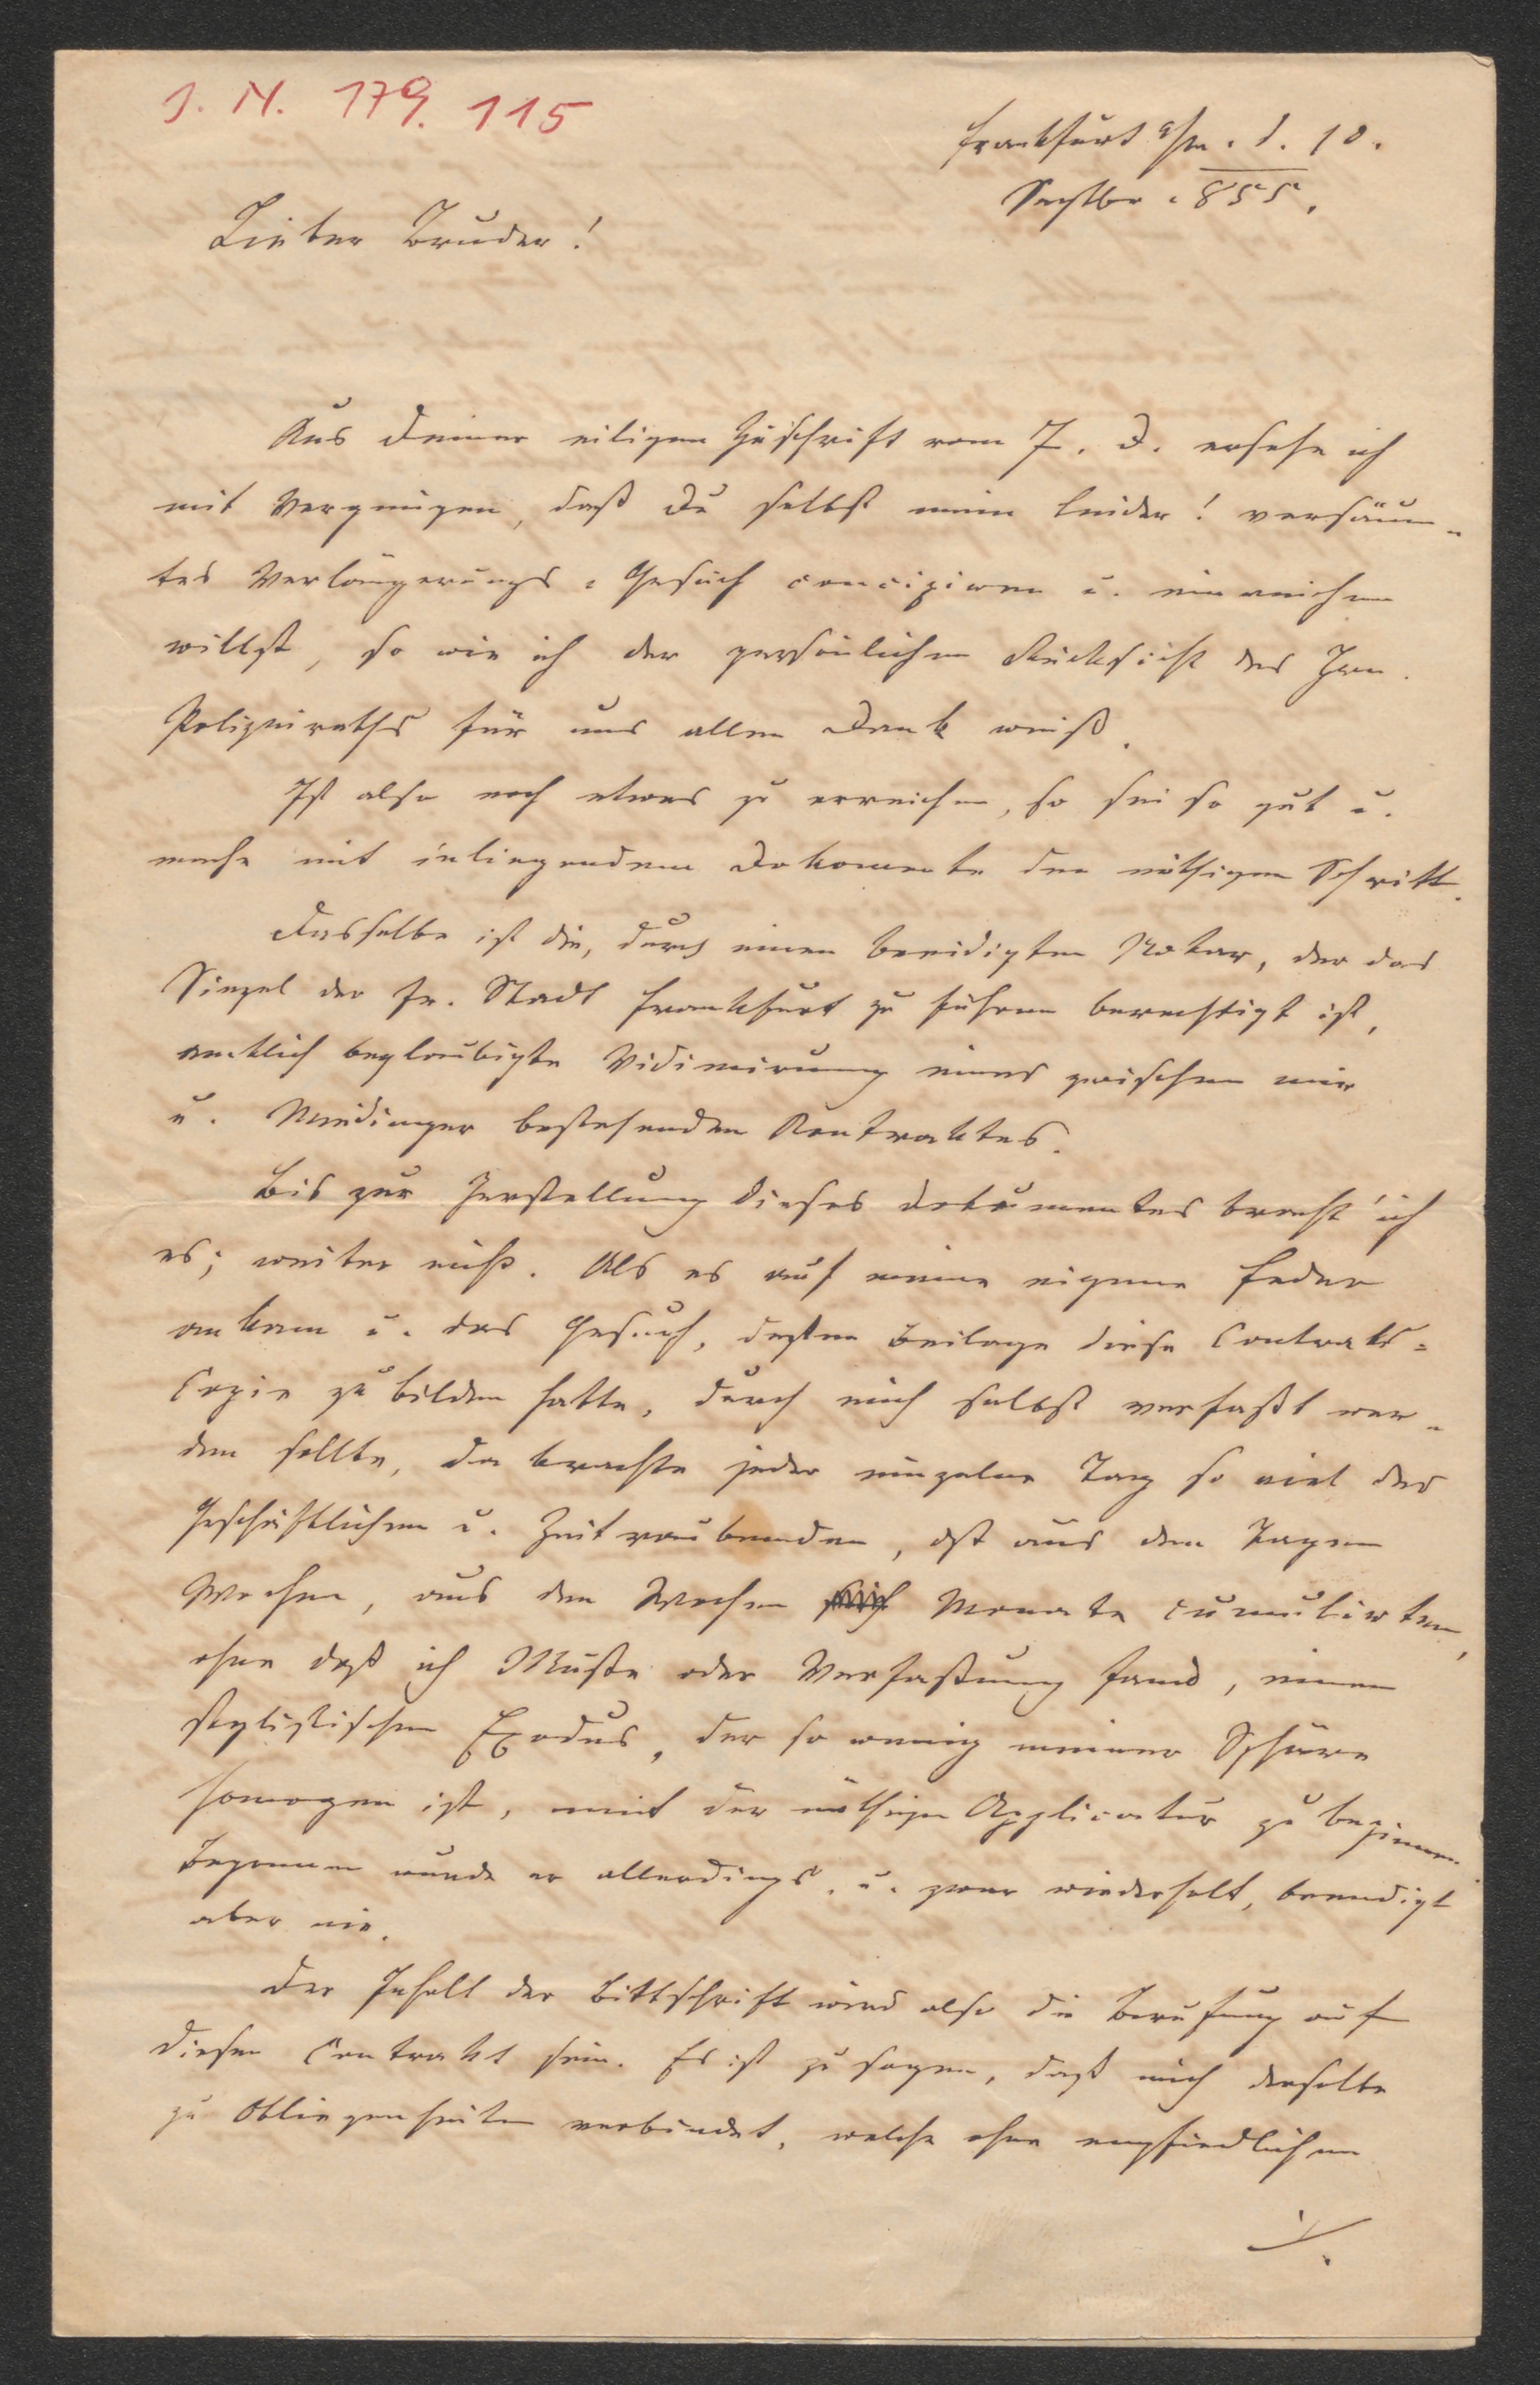 J. N. 179.115
Frankfurt a/m. d. 10.
Septbr. 855.
Lieber Bruder!
Aus Deiner eiligen Zuschrift vom 7. d. ersehe ich
mit Vergnügen, daß Du selbst mein leider! versäum-
tes Verlängerungs-Gesuch concipiren u. einreichen
willst, so wie ich der persönlichen Rücksicht des Hrn.
Polizeiraths für uns allen Dank weiß.
Ist also noch etwas zu erreichen, so sei so gut u.
mache mit inliegendem Dokomente den nöthigen Schritt.
Dasselbe ist die, durch einen beeidigten Notar, der das
Siegel der fr. Stadt Frankfurt zu führen berechtigt ist,
amtlich beglaubigte Vidimirung eines zwischen mir
u. Meidinger bestehenden Kontraktes.
Bis zur Herstellung dieses Dokumentes bracht' ich
es; weiter nicht. Als es auf meine eigene Feder
ankam u. das Gesuch, dessen Beilage diese Contrakts-
Copie zu bilden hatte, durch mich selbst verfaßt wer-
den sollte, da brachte jeder einzelne Tag so viel des
Geschäftlichen u. Zeitraubenden, daß aus den Tagen
Wochen, aus den Wochen Monate cumulirten,
ohne daß ich Muße oder Verfaßung fand, einen
stylistischen Exodus, der so wenig meiner Sphäre
homogen ist, mit der nöthigen Applicatur zu beginnen.
Begonnen wurde er allerdings, u. zwar wiederholt, beendigt
aber nie.
Der Inhalt der Bittschrift wird also die Berufung auf
diesen Contrakt sein. Es ist zu sagen, daß mich derselbe
zu Obliegenheiten verbindet, welche ohne empfindlichen
./.